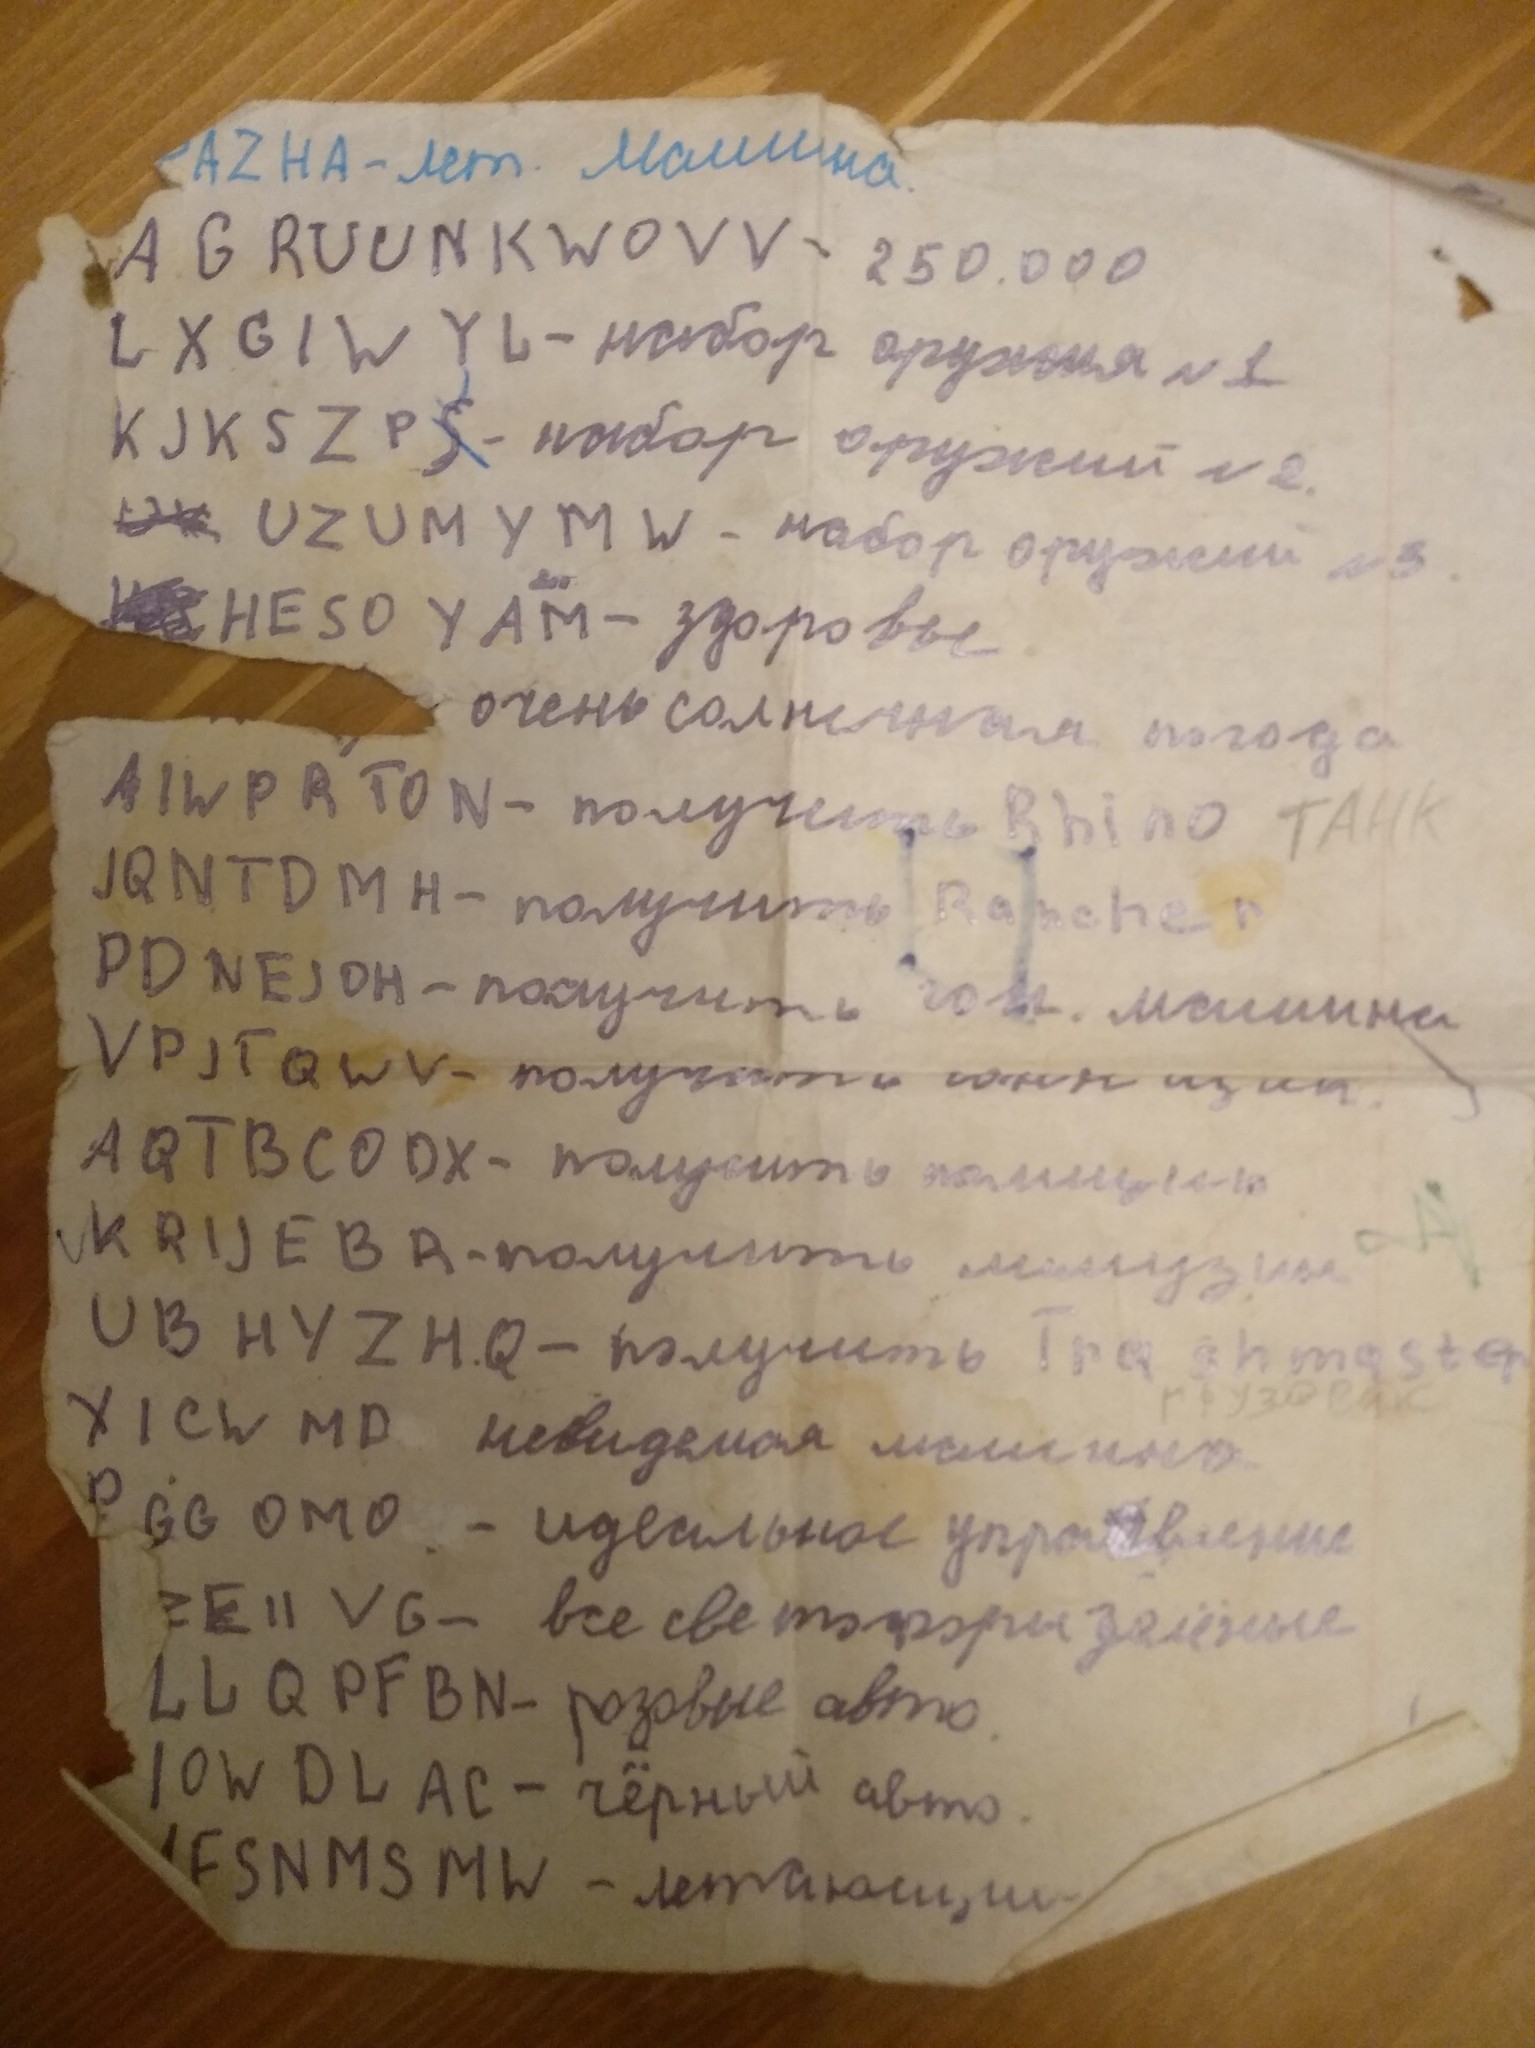 AZHA - лет. машина.
AGRUUNKWOVV - 250.000
LXGIWYL - набор оружия №1
KJKSZPS - набор оружий №2.
UZUMYMW - набор оружий №3.
HESOYAM - здоровье
очень солнечная погода
AIWPRTON - получить Rhino ТАНК
JQNTDMH - получить Rancher
PDNEJOH - получить гон. машина
VPJTQWV - получить
AQTBCODX - получить
KRIJEBR - получить лимузин
UBHYZHQ - получить Trashmaster
грузовик
XICWMD невидемая машина
PGGOMO - идеальное управление
ZEIIVG - все светофоры зелёные
LLQPFBN - розовые авто.
IOWDLAC - чёрный авто.
FSNMSMW - летающии